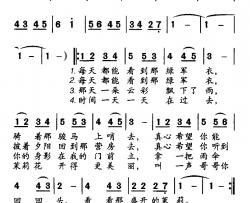 4345 | 6 i | 5645 | 3427 | 1 - |
1 - ) | : 12 34 | 5 5 34 | 5 5 | 5 53 |
1.每天都能看到那绿军衣,
2.每天都能看到那绿军衣,
3.那天一朵云彩飘下了雨,
4.时间一天一天在过去,
5 12 34 | 5 5 23 | 4 - | 4 23 45 |
骑着那骏马上哨去, 真心希望你能
披着夕阳回到那营房去, 真心希望你能
你的身影在我的门前立, 拿一把雨伞
茉莉花开得更美丽, 叫一声哥哥你
4 43 | 2 43 45 | 4 34 27 | 1 - : |
回回头, 看看那盛开的茉莉。